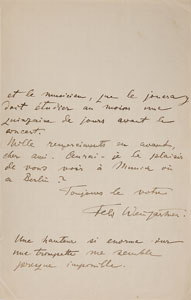 et le musicien, que le jouera
doit étudier au moins une
quinzaine de jours avant le
concert.
Mille remerciments en avance,
cher ami. Aurai-je le plaisir
de vous voir à Munich ou
à Berlin?
Toujours le votre
Felix Weingartner.
Une hauteur si enorme sur
une trompette me semble
presque impossible.